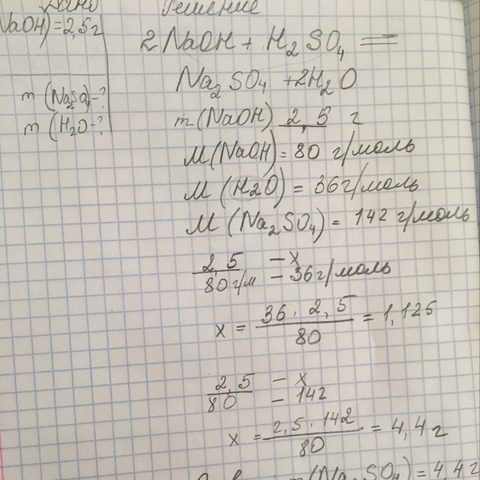 Дано
NaOH) = 2,5 г
m (Na₂SO₄) - ?
m (H₂O - ?
Решение
2 NaOH + H₂SO₄ =
Na₂SO₄ + 2H₂O
m (NaOH) 2,5 г
M (NaOH) = 80 г/моль
M (H2O) = 36 г/моль
M (Na₂SO₄) = 142 г/моль
2,5 - x
80 г/м - 36 г/моль
x = 36 · 2,5 / 80 = 1,125
2,5 - x
80 - 142
x = 2,5 · 142 / 80 = 4,4 г
m (Na₂SO₄) = 4,4 г